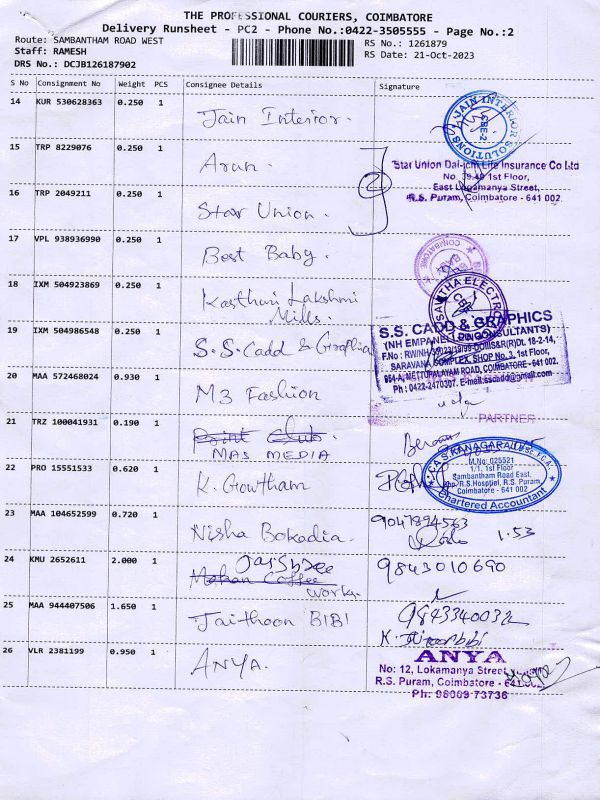 THE PROFESSIONAL COURIERS, COIMBATORE
Delivery Runsheet - PC2 - Phone No.:0422-3505555 - Page No.:2
Route: SAMBANTHAM ROAD WEST
RS No.: 1261879
Staff: RAMESH
RS Date: 21-Oct-2023
DRS No.: DCJB126187902
S No Consignment No Weight PCS Consignee Details Signature
14 KUR 530628363 0.250 1 Jain Interior.
JAIN INTERIOR SOLUTIONS
CBE-2
15 TRP 8229076 0.250 1 Arun.
Star Union Dai-ichi Life Insurance Co Ltd
1st Floor,
East Logamanya Street,
R.S. Puram, Coimbatore - 641 002.
16 TRP 2049211 0.250 1 Star Union.
17 VPL 938936990 0.250 1 Best Baby.
COIMBATORE
18 IXM 504923869 0.250 1 Kasthuri Lakshmi
Mills.
19 IXM 504986548 0.250 1 S.S. Cadd & Graphics
S.S. CADD & GRAPHICS
(NH EMPANELLED CONSULTANTS)
SARAVANA COMPLEX, SHOP No. 3, 1st Floor,
METTUPALAYAM ROAD, COIMBATORE - 641 002.
Ph : 0422-2470307. E-mail:sscadd@gmail.com
20 MAA 572468024 0.930 1 M3 Fashion
PARTNER
21 TRZ 100041931 0.190 1 Print Club.
MAS MEDIA
22 PRO 15551533 0.620 1 K. Gowtham
M.No: 025521
1/1, 1st Floor
Sambantham Road East,
R.S. Puram,
Coimbatore - 641 002
Chartered Accountant
23 MAA 104652599 0.720 1 Nisha Bokadia.
9047894563
1.53
24 KMU 2652611 2.000 1 Jaishree
Mohan Coffee
works.
9843010690
25 MAA 944407506 1.650 1 Jaithoon BIBI
9843340032
26 VLR 2381199 0.950 1 ANYA.
ANYA
No: 12, Lokamanya Street,
R.S. Puram, Coimbatore -
Ph: 98009 73736